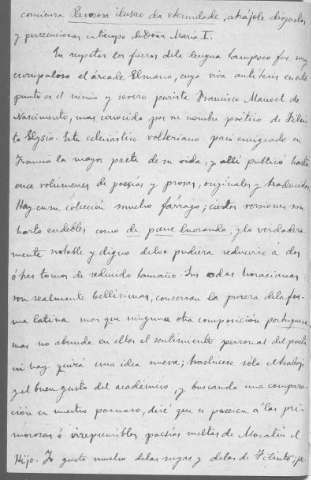 comienza Pavorosa ilusão da eternidade, atrájole disgustos
y persecuciones en tiempo de Doña María I.
En respetar los fueros de la lengua tampoco fue muy
escrupuloso el árcade Elmano, cuya viva antítesis en este
punto es el nimio y severo purista Francisco Manuel do
Nascimento, mas conocido por su nombre poético de Filin-
to Elysio. Este eclesiástico volteriano pasó emigrado en
Francia la mayor parte de su vida, y allí publicó hasta
once volumenes de poesías y prosas, originales y traducidas.
Hay en su colección mucho fárrago; ciertas versiones son
harto endebles como de pane lucrando, y lo verdadera-
mente notable y digno de leer pudiera reducirse a dos
ó tres tomos de reducido tamaño. Sus odas horacianas
son realmente bellísimas, conservan la pureza de la for-
ma latina mas que ninguna otra composición portuguesa,
mas no abunda en ellas el sentimiento personal del poeta
ni hay quizá una idea nueva; tradúcese sólo el trabajo
y el buen gusto del académico, y buscando una compara-
ción en nuestro parnaso, diré que se parecen a las pri-
morosas é irreprensibles poesías sueltas de Moratín el
Hijo. Yo gusto mucho de las suyas y de las de Filinto,